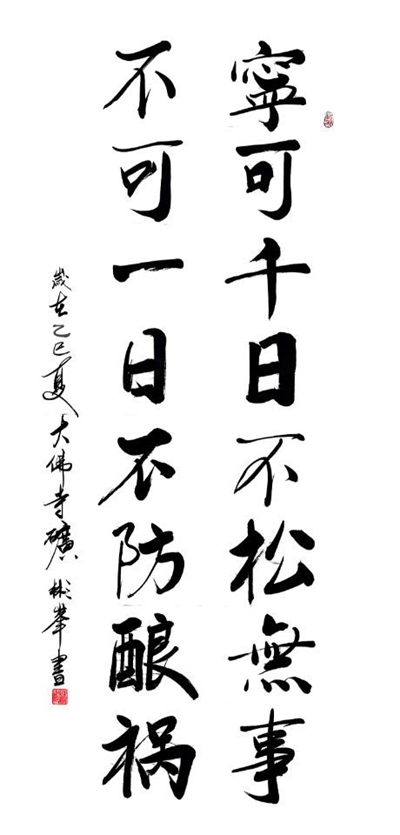 寧可千日不松無事
不可一日不防酿祸
歲在乙巳夏大佛寺礦彬峯書